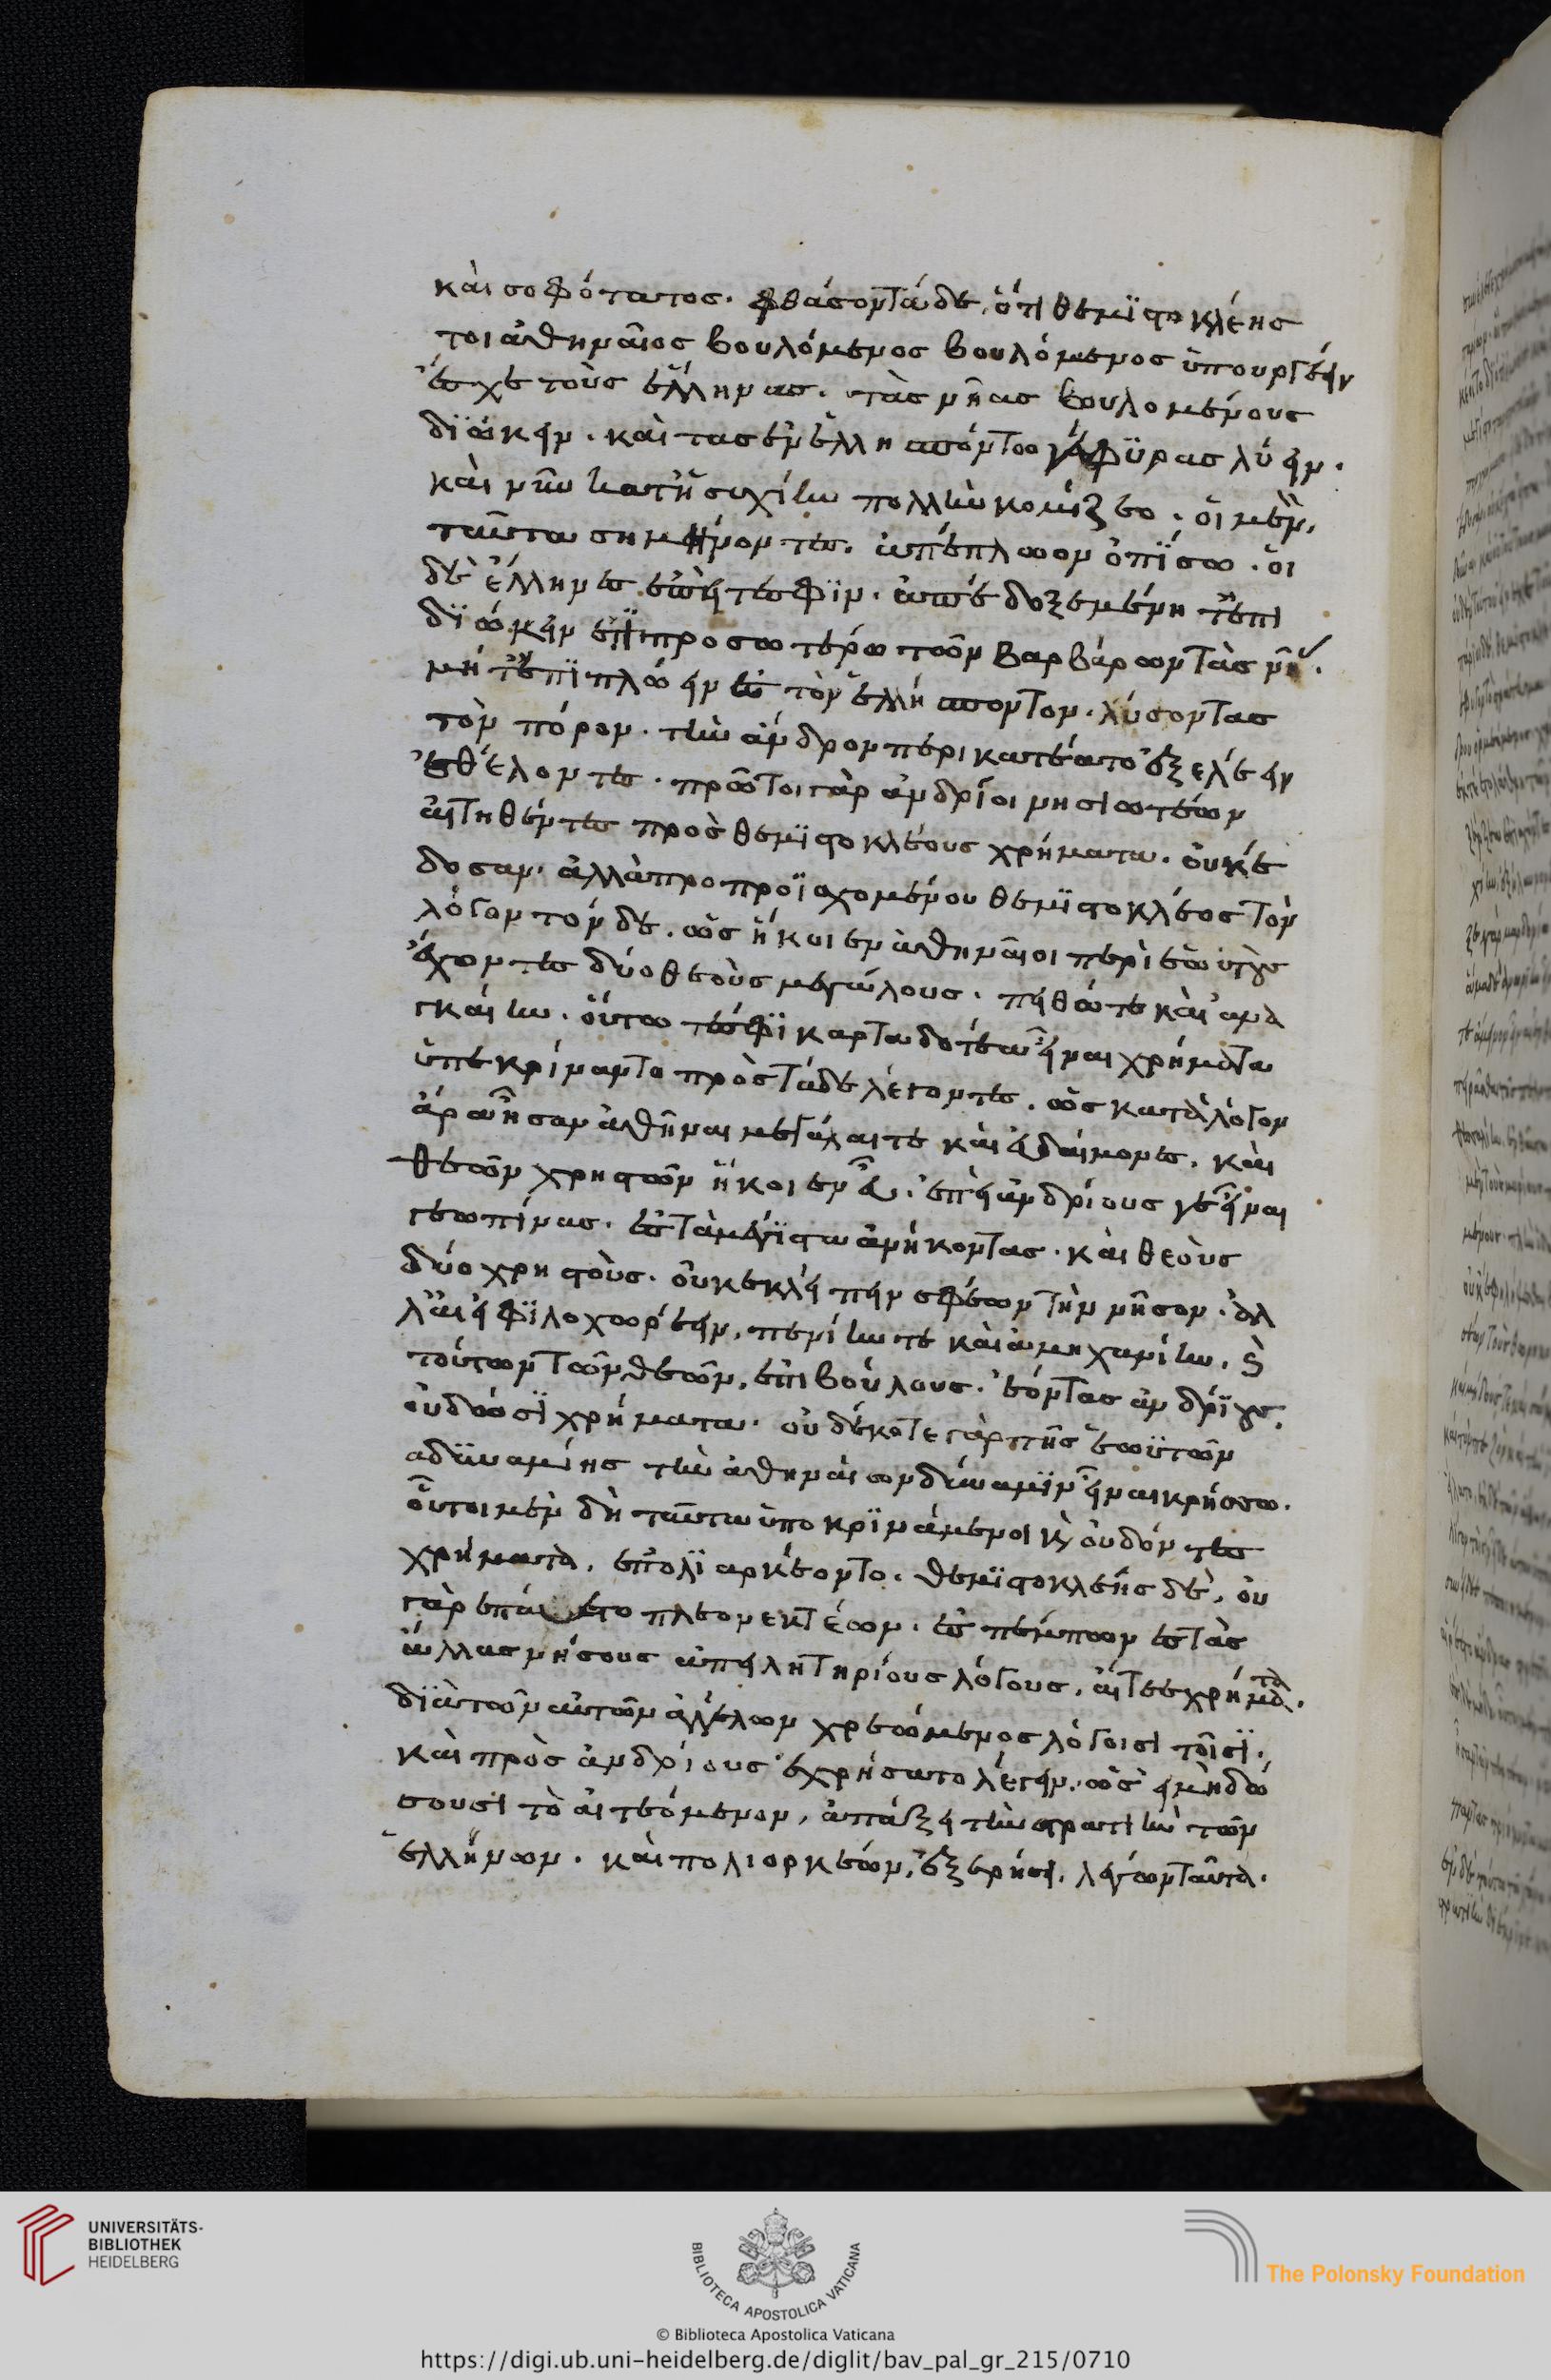 καὶ σοφότατος. φράσοντα ὑμῖν, ὅτι θεμϊστοκλέης
τοι ἀθηναῖος βουλόμενος βουλόμενος ὑπουργέειν
ἔσχε τοὺς ἕλληνας. τὰς νῆας βουλομένους
διώκειν. καὶ τὰς ἐν ἑλλησπόντω γεφύρας λύειν.
καὶ νῦν κατ' ἡσυχίην πολλὴν κομίζεο. οἱ μὲν,
ταῦτα σημήναντες. ἀπέπλωον ὀπίσω. οἱ
δὲ ἕλληνες ἐπεί τε σφϊν. ἀπέδοξε μήτ' ἐπι
διώκειν ἔτι προσωτέρω τῶν βαρβάρων τὰς νῆας.
μήτ' ἐπιπλώειν ἐς τὸν ἑλλήσποντον. λύσοντας
τὸν πόρον. τὴν ἄνδρον περικατέατο ἐξελέειν
ἐθέλοντες. πρῶτοι γὰρ ἄνδριοι νησιωτέων
αἰτηθέντες πρὸς θεμϊστοκλέους χρήματα. οὐκ ἔ
δοσαν. ἀλλὰ προπροϊσχομένου θεμϊστοκλέος τὸν
λόγον τόνδε. ὡς ἥκοιεν ἀθηναῖοι περὶ ἑωυτοὺς
ἔχοντες δύο θεοὺς μεγάλους. πειθώ τε καὶ ἀνα
γκαίην. οὕτω τέ σφϊ κάρτα δοτέα εἶναι χρήματα
ὑπεκρίναντο πρὸς τάδε λέγοντες. ὡς κατὰ λόγον
ἄρα ἦσαν ἀθῆναι μεγάλαι τε καὶ εὐδαίμονες. καὶ
θεῶν χρηστῶν ἥκοιεν εὖ. ἐπεὶ ἀνδρίους γε εἶναι
γεωπίνας. ἐς τὰ μέγϊστα ἀνήκοντας. καὶ θεοὺς
δύο χρηστοὺς. οὐκ ἐκλείπειν σφέων τὴν νῆσον. ἀλ
λ' αἰεὶ φϊλοχωρέειν. πενίην τε καὶ ἀμηχανίην. καὶ
τούτων τῶν θεῶν, ἐπηβόλους. ἐόντας ἀνδρίους.
οὐ δώσϊ χρήματα. οὐδέκοτε γὰρ τῆς ἑωϋτῶν
αδϋναμίης τὴν ἀθηναίων δύναμϊν εἶναι κρήσσω.
οὗτοι μὲν δὴ ταῦτα ὑποκρϊνάμενοι καὶ οὐ δόντες
χρήματα, ἐπολϊορκέοντο. θεμϊστοκλέης δὲ, οὐ
γὰρ ἐπαύετο πλεονεκτέων. ἐσπέμπων ἐς τὰς
ἄλλας νήσους ἀπειλητηρίους λόγους, αἴτεε χρήματα.
διὰ τῶν αὐτῶν ἀγγέλων χρεώμενος λόγοισι τοῖσϊ.
καὶ πρὸς ἀνδρίους ἐχρήσατο λέγων. ὡς εἰ μὴ δώ
σουσι τὸ αἰτεόμενον, ἐπάξει τὴν στρατιὴν τῶν
ἑλλήνων. καὶ πολιορκέων, ἐξαιρήσει. λέγων ταῦτα.
UNIVERSITÄTS-
BIBLIOTHEK
HEIDELBERG
BIBLIOTECA APOSTOLICA VATICANA
The Polonsky Foundation
© Biblioteca Apostolica Vaticana
https://digi.ub.uni-heidelberg.de/diglit/bav_pal_gr_215/0710